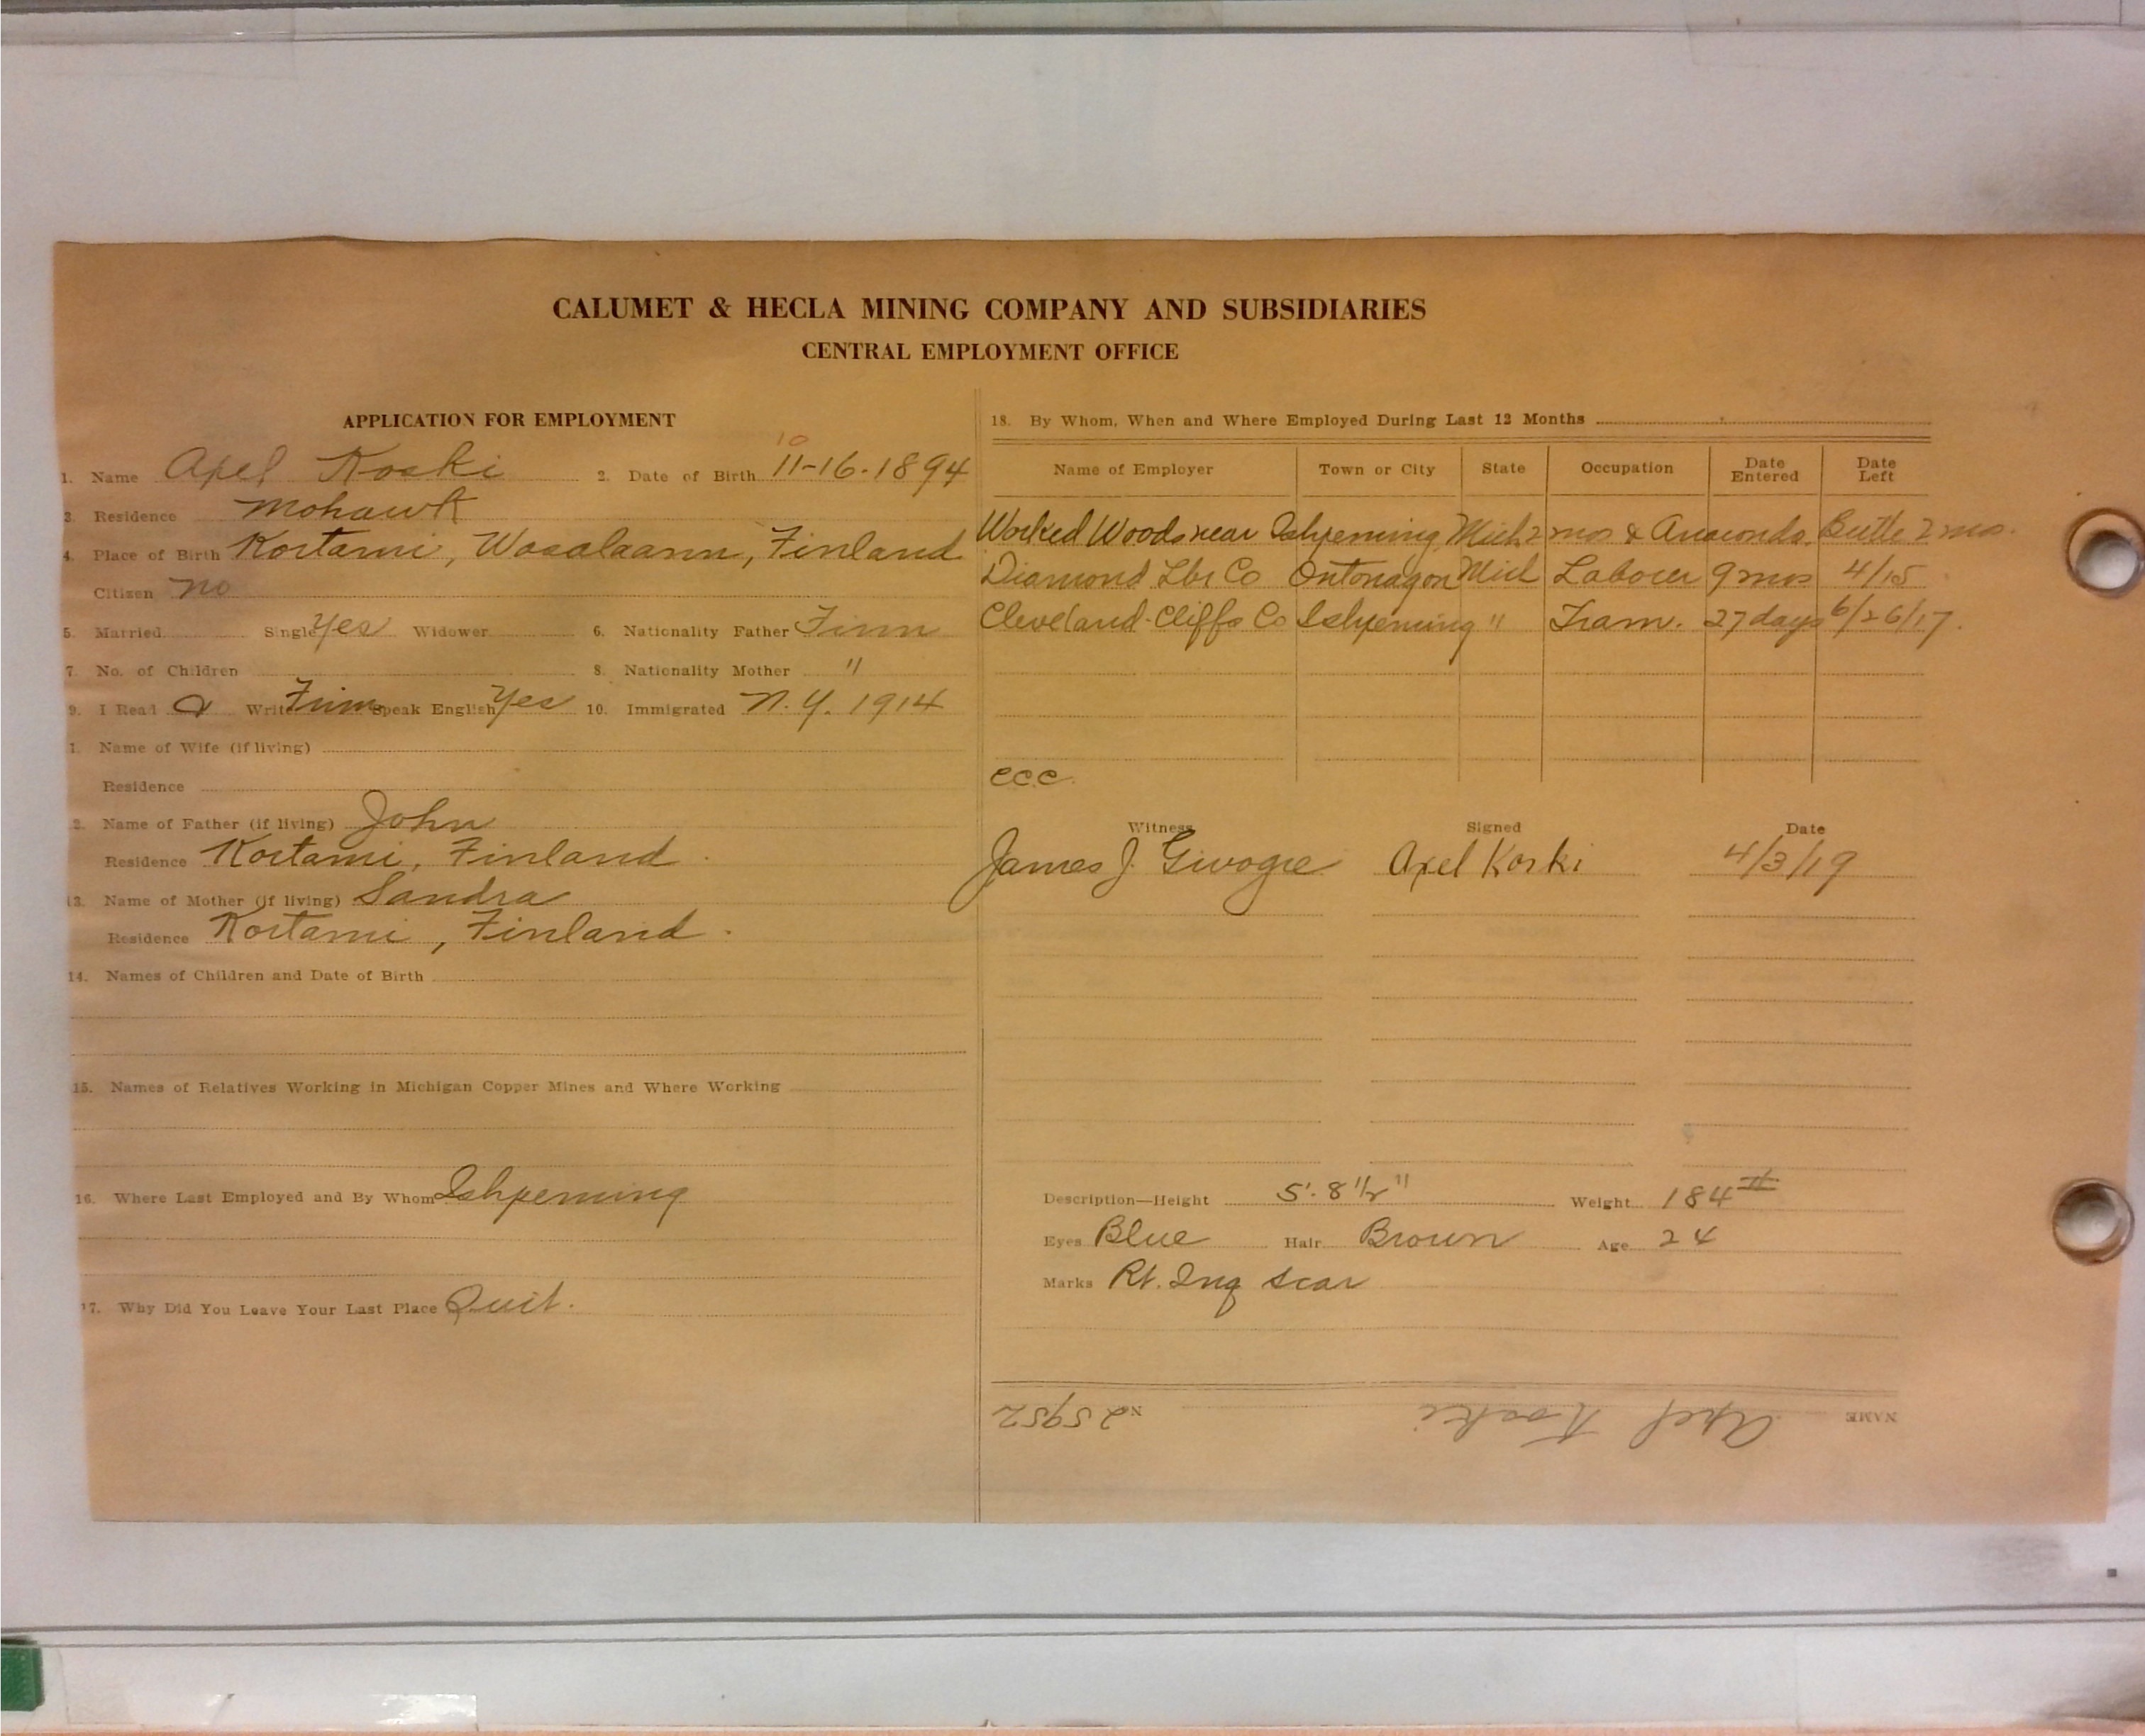 CALUMET & HECLA MINING COMPANY AND SUBSIDIARIES
CENTRAL EMPLOYMENT OFFICE
APPLICATION FOR EMPLOYMENT
10
1. Name Axel Koski 2. Date of Birth 11-16-1894
3. Residence Mohawk
4. Place of Birth Kortami, Wasalaann, Finland
Citizen no
5. Married Single Yes Widower 6. Nationality Father Finn
7. No. of Children 8. Nationality Mother "
9. I Read & Write Finn Speak English Yes 10. Immigrated N.Y. 1914
1. Name of Wife (if living)
Residence
2. Name of Father (if living) John
Residence Kortami, Finland.
13. Name of Mother (if living) Sandra
Residence Kortami, Finland.
14. Names of Children and Date of Birth
15. Names of Relatives Working in Michigan Copper Mines and Where Working
16. Where Last Employed and By Whom Ishpeming
17. Why Did You Leave Your Last Place Quit.
18. By Whom, When and Where Employed During Last 12 Months
Name of Employer Town or City State Occupation Date Entered Date Left
Worked Woods near Ishpeming Mich 2 mos & Anaconda, Butte 2 mos.
Diamond Lbr Co Ontonagon Mich Laborer 9 mos 4/15
Cleveland-Cliffs Co Ishpeming " Tram. 27 days 6/26/17.
CCC.
Witness Signed Date
James J. Axel Koski 4/3/19
Description—Height 5'. 8 1/2" Weight 184#
Eyes Blue Hair Brown Age 24
Marks Rt. Ing scar
NAME Axel Koski No 25952